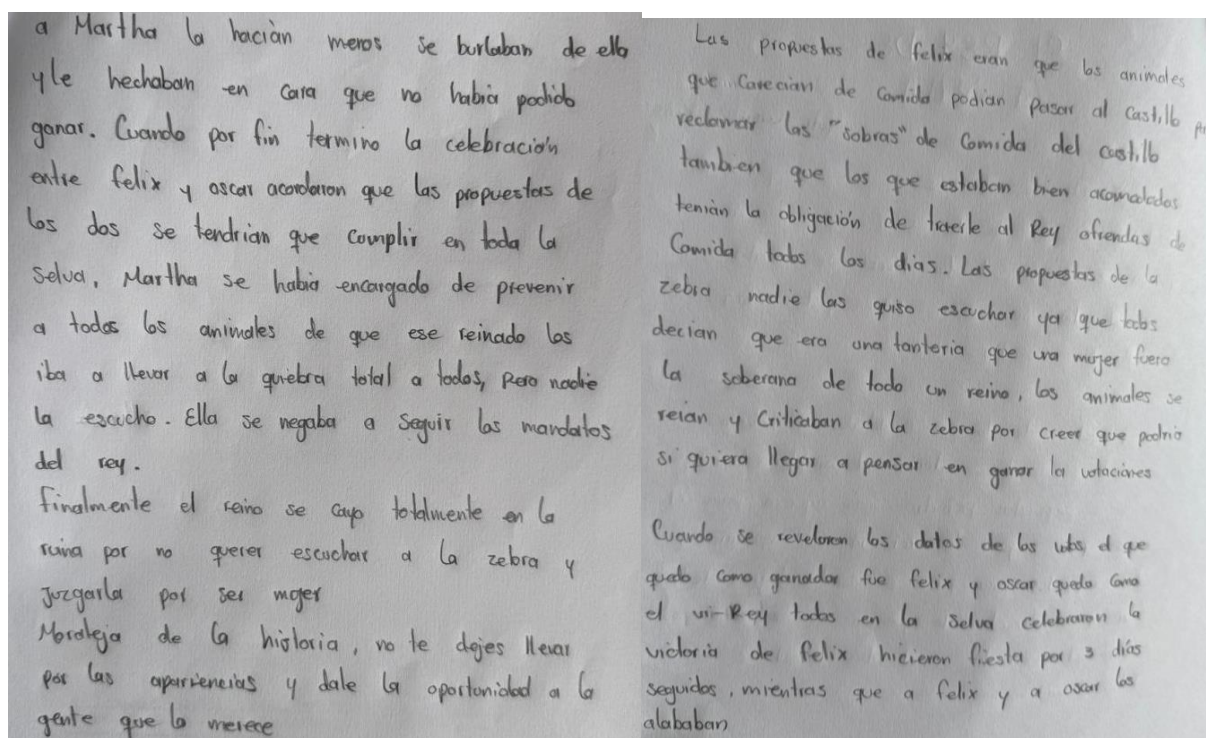 a Martha la hacian menos se burlaban de ella
y le hechaban en cara que no habia podido
ganar. Cuando por fin termino la celebración
entre felix y oscar acordaron que las propuestas de
los dos se tendrian que cumplir en toda la
selva, Martha se habia encargado de prevenir
a todos los animales de que ese reinado los
iba a llevar a la quiebra total a todos, pero nadie
la escucho. Ella se negaba a seguir los mandatos
del rey.
finalmente el reino se cayo totalmente en la
ruina por no querer escuchar a la zebra y
juzgarla por ser mujer
Moraleja de la historia, no te dejes llevar
por las aparriencias y dale la oportunidad a la
gente que lo merece
Las propuestas de felix eran que los animales
que carecian de comida podian pasar al castillo
reclamar las "sobras" de comida del castillo
tambien que los que estaban bien acomodados
tenian la obligación de traerle al Rey ofrendas de
comida todos los dias. Las propuestas de la
zebra nadie las quiso escuchar ya que todos
decian que era una tonteria que una mujer fuera
la soberana de todo un reino, los animales se
reian y criticaban a la zebra por creer que podria
si quiera llegar a pensar en ganar la votaciónes
Cuando se revelaron los datos de los votos el que
quedo como ganador fue felix y oscar quedo como
el vi-Rey todos en la selva celebraron la
victoria de felix hicieron fiesta por 3 días
seguidos, mientras que a felix y a oscar los
alababan